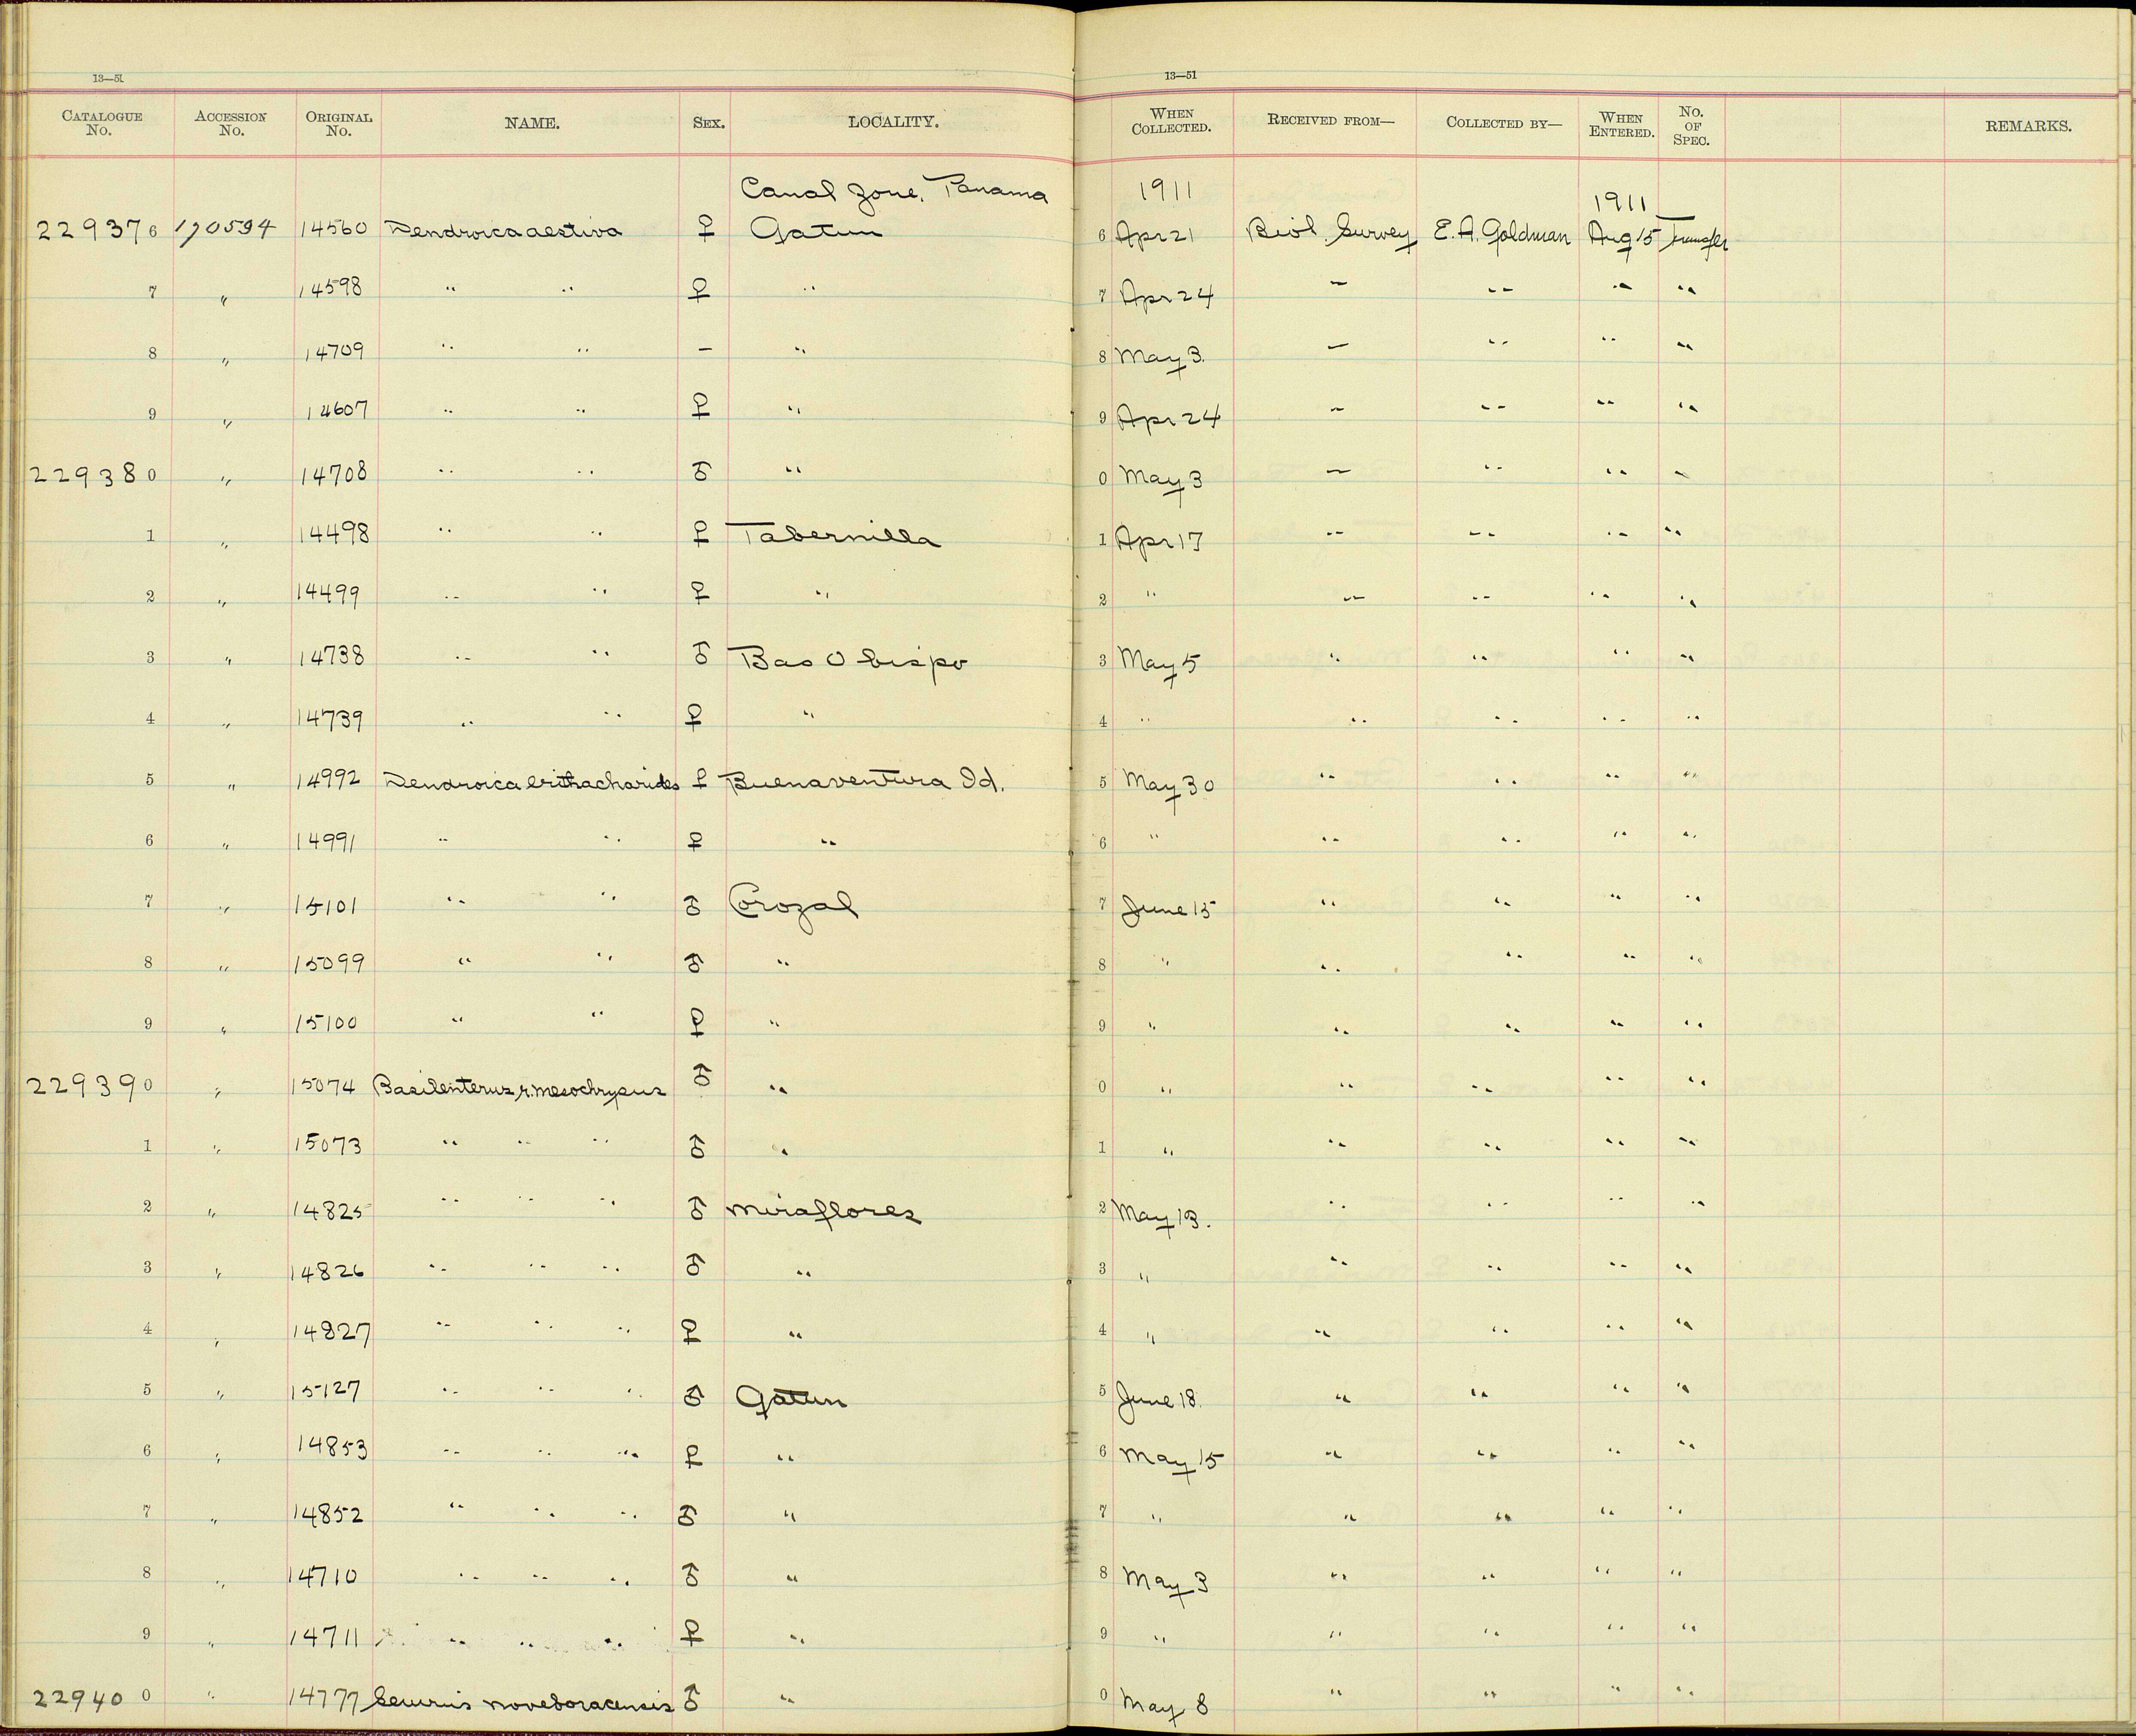 13—51 13—51
CATALOGUE No. ACCESSION No. ORIGINAL No. NAME. SEX. LOCALITY. WHEN COLLECTED. RECEIVED FROM— COLLECTED BY— WHEN ENTERED. No. OF SPEC. REMARKS.
Canal Zone, Panama 1911 1911
229376 170594 14560 Dendroica aestiva ♀ Gatun 6 Apr 21 Biol. Survey E. A. Goldman Aug 15 Transfer
7 " 14598 " " ♀ " 7 Apr 24 " " " "
8 " 14709 " " — " 8 May 3. " " " "
9 " 14607 " " ♀ " 9 Apr 24 " " " "
229380 " 14708 " " ♂ " 0 May 3 " " " "
1 " 14498 " " ♀ Tabernilla 1 Apr 17 " " " "
2 " 14499 " " ♀ " 2 " " " " "
3 " 14738 " " ♂ Bas Obispo 3 May 5 " " " "
4 " 14739 " " ♀ " 4 " " " " "
5 " 14992 Dendroica erithachorides ♀ Buenaventura Id. 5 May 30 " " " "
6 " 14991 " " ♀ " 6 " " " " "
7 " 15101 " " ♂ Corozal 7 June 15 " " " "
8 " 15099 " " ♂ " 8 " " " " "
9 " 15100 " " ♀ " 9 " " " " "
229390 " 15074 Basileuterus r. mesochrysus ♂ " 0 " " " " "
1 " 15073 " " " ♂ " 1 " " " " "
2 " 14825 " " " ♂ Miraflores 2 May 13. " " " "
3 " 14826 " " " ♂ " 3 " " " " "
4 " 14827 " " " ♀ " 4 " " " " "
5 " 15127 " " " ♂ Gatun 5 June 18. " " " "
6 " 14853 " " " ♀ " 6 May 15 " " " "
7 " 14852 " " " ♂ " 7 " " " " "
8 " 14710 " " " ♂ " 8 May 3 " " " "
9 " 14711 " " " ♀ " 9 " " " " "
229400 " 14777 Seiurus noveboracensis ♂ " 0 May 8 " " " "